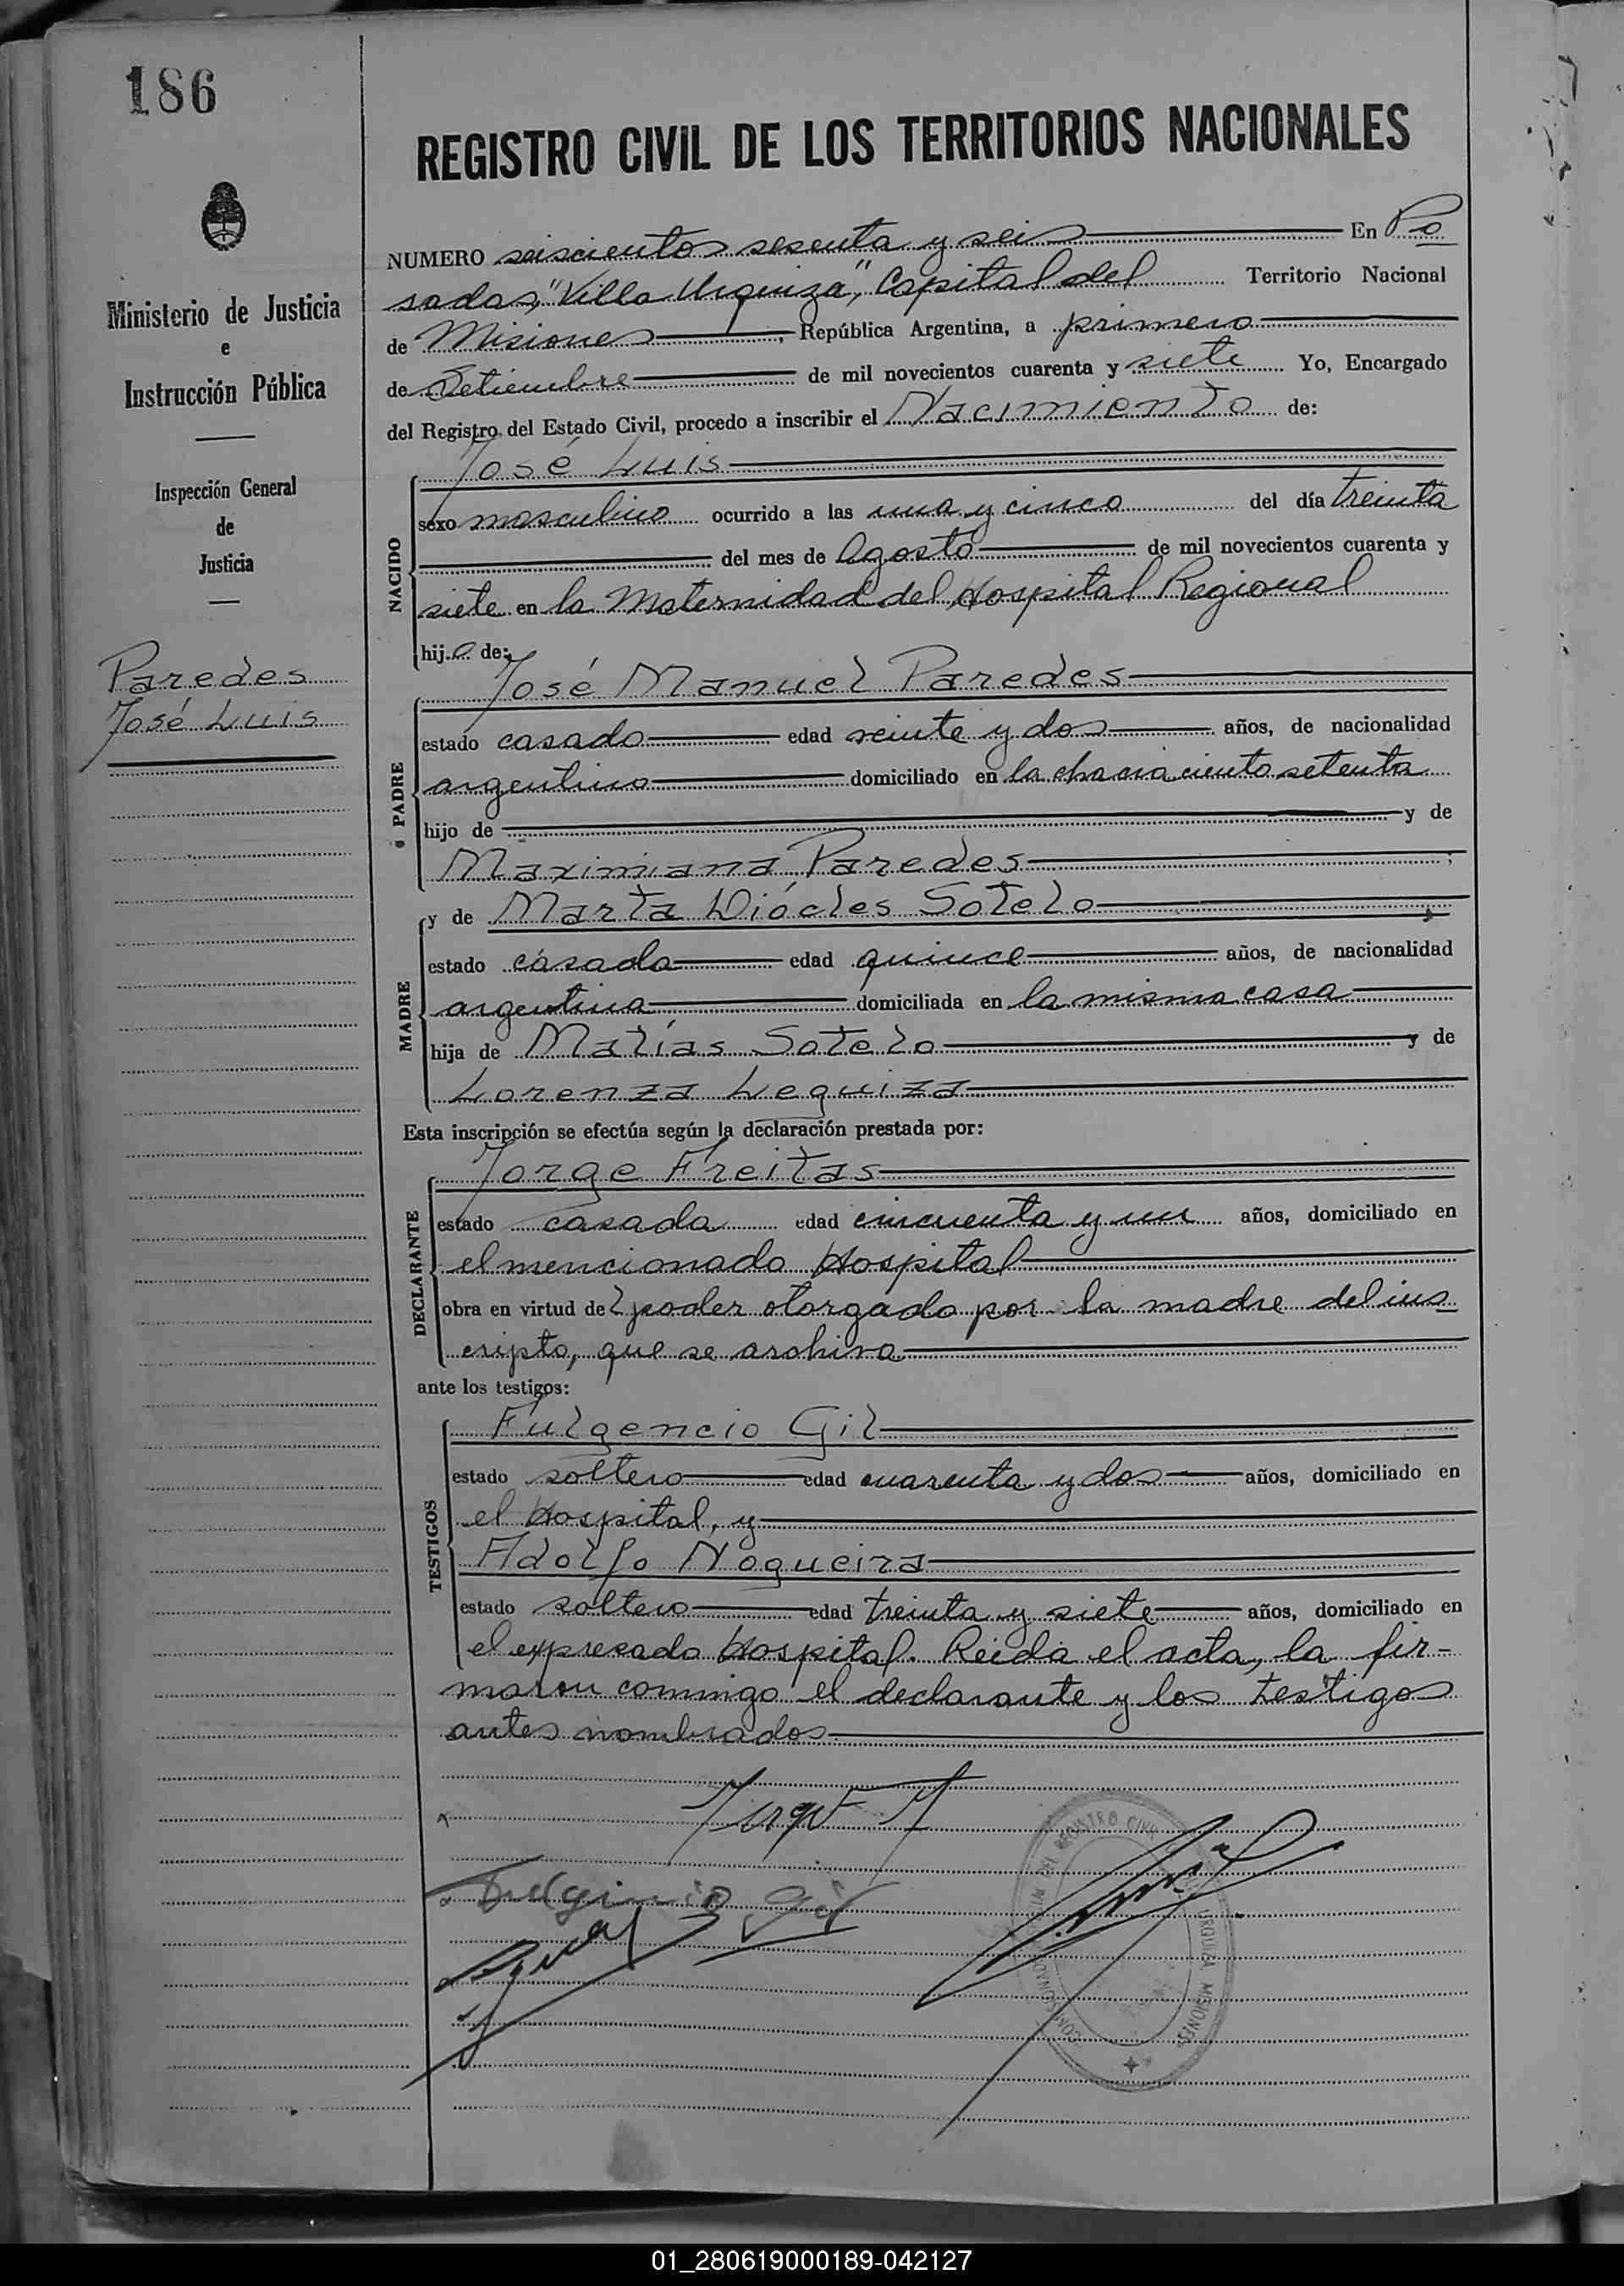 186
REGISTRO CIVIL DE LOS TERRITORIOS NACIONALES
Ministerio de Justicia
e
Instrucción Pública
Inspección General
de
Justicia
Paredes
José Luis
NUMERO seiscientos sesenta y seis En Po
sadas, "Villa Urquiza", Capital del Territorio Nacional
de Misiones, República Argentina, a primero
de Setiembre de mil novecientos cuarenta y siete Yo, Encargado
del Registro del Estado Civil, procedo a inscribir el Nacimiento de:
José Luis
NACIDO
sexo masculino ocurrido a las una y cinco del día treinta
del mes de Agosto de mil novecientos cuarenta y
siete en la Maternidad del Hospital Regional
hijo de:
José Manuel Paredes
PADRE
estado casado edad veinte y dos años, de nacionalidad
argentino domiciliado en la chacra ciento setenta
hijo de y de
Maximiana Paredes
y de Marta Diócles Sotelo
MADRE
estado casada edad quince años, de nacionalidad
argentina domiciliada en la misma casa
hija de Matías Sotelo y de
Lorenza Leguiza
Esta inscripción se efectúa según la declaración prestada por:
Jorge Freitas
DECLARANTE
estado casado edad cincuenta y un años, domiciliado en
el mencionado Hospital
obra en virtud del poder otorgado por la madre del ins
cripto, que se archiva
ante los testigos:
Fulgencio Gil
TESTIGOS
estado soltero edad cuarenta y dos años, domiciliado en
el Hospital, y
Adolfo Nogueira
estado soltero edad treinta y siete años, domiciliado en
el expresado Hospital. Leida el acta, la fir-
maron conmigo el declarante y los testigos
antes nombrados
REGISTRO CIVIL
URQUIZA MISIONES
Fulgencio Gil
01_280619000189-042127